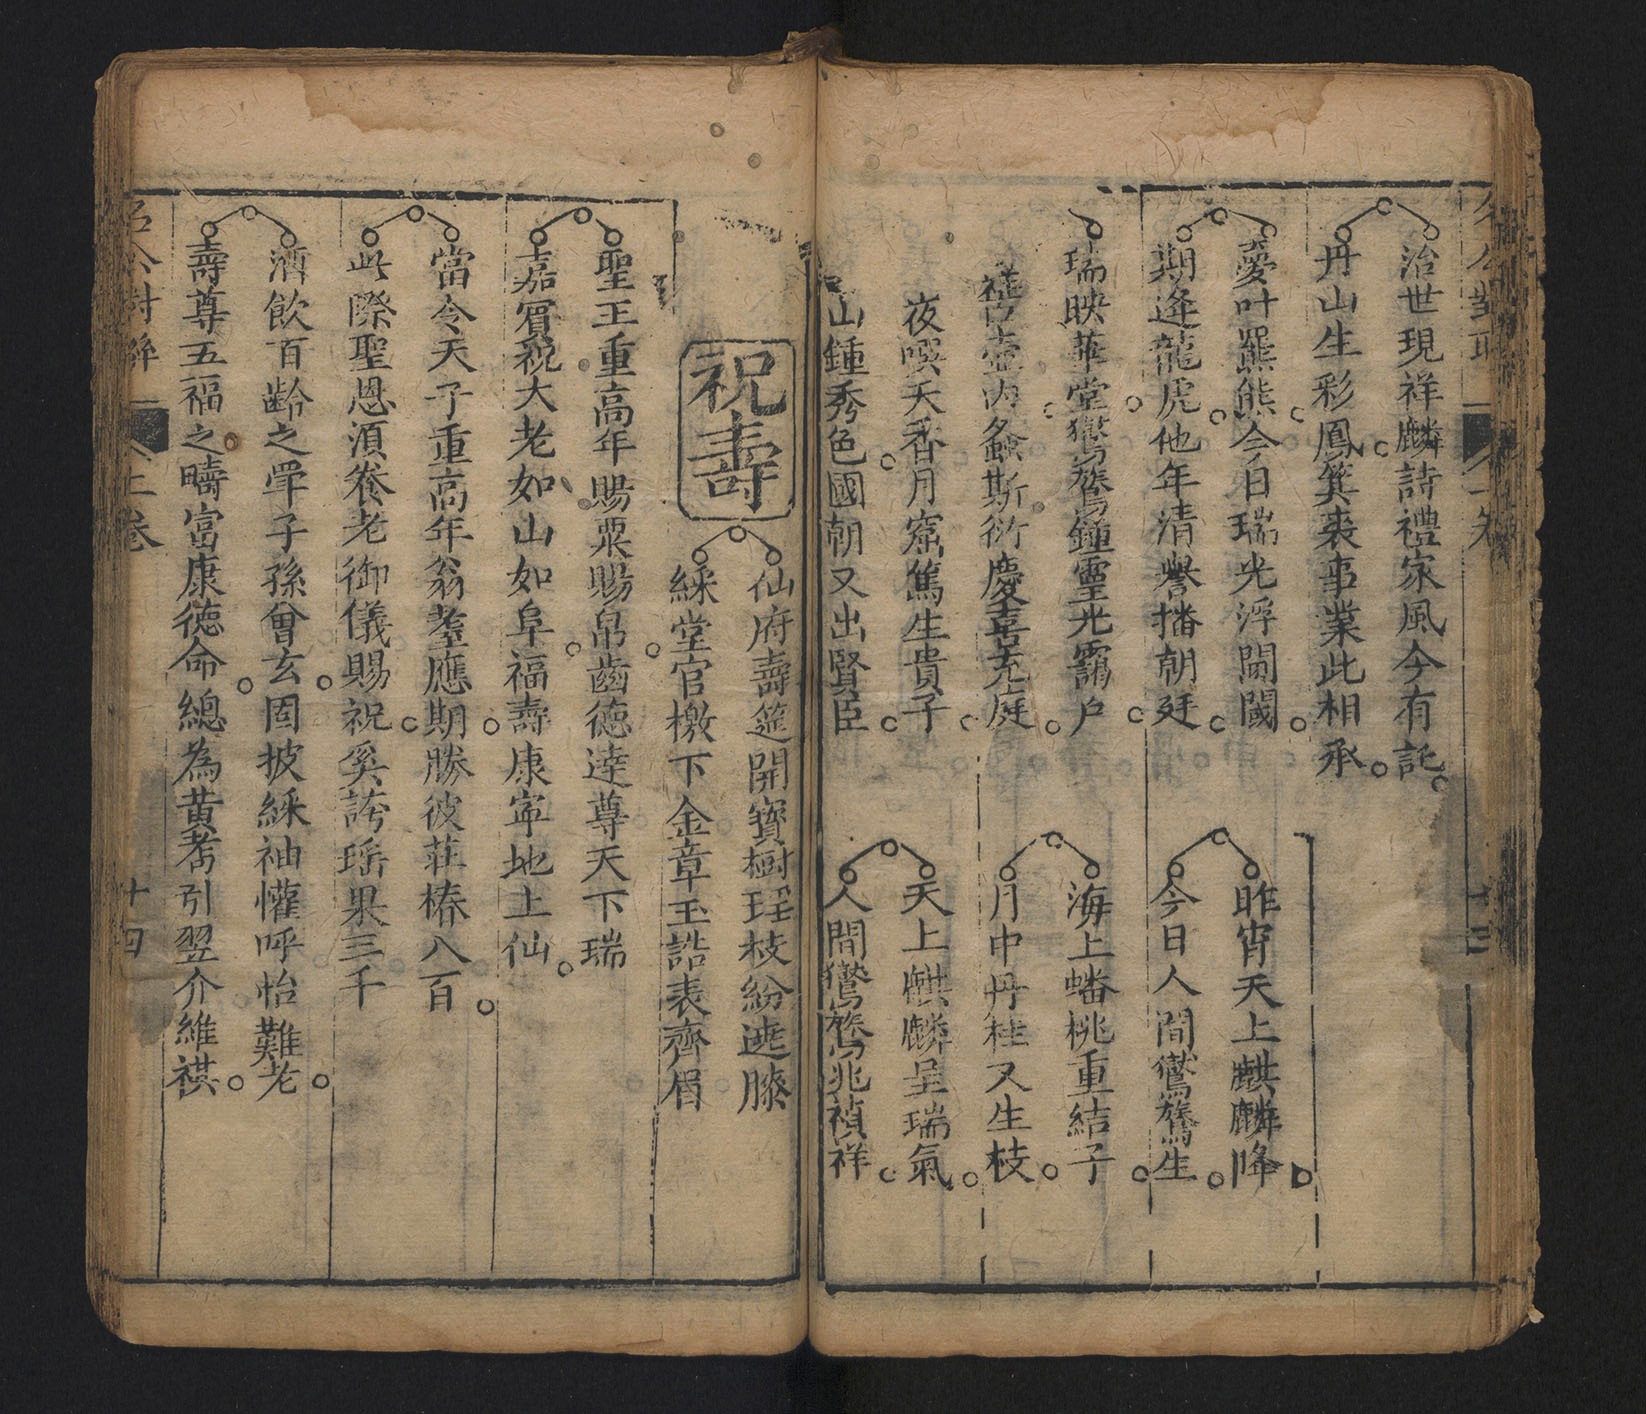 治世現祥麟詩禮家風今有託
丹山生彩鳳箕裘事業此相承
夢叶羆熊今日瑞光浮閫閾
期逢龍虎他年清譽播朝廷
昨宵天上麒麟降
今日人間鸑鷟生
瑞映華堂鸑鷟鍾靈光靄戶
壺內螽斯衍慶喜充庭
海上蟠桃重結子
月中丹桂又生枝
夜噀天香月窟篤生貴子
山鍾秀色國朝又出賢臣
天上麒麟呈瑞氣
人間鸑鷟兆禎祥
祝壽
仙府壽筵開寶樹瑤枝紛遶膝
綵堂官檄下金章玉誥表齊眉
聖王重高年賜粟賜帛齒德達尊天下瑞
嘉賓祝大老如山如阜福壽康寧地上仙
當今天子重高年翁耋應期勝彼莊椿八百
此際聖恩湏養老御儀賜祝奚誇瑤果三千
酒飲百齡之斝子孫曾玄固披綵袖懽呼怡難老
壽尊五福之疇富康德命總為黃耇引翌介維祺
上卷
十四